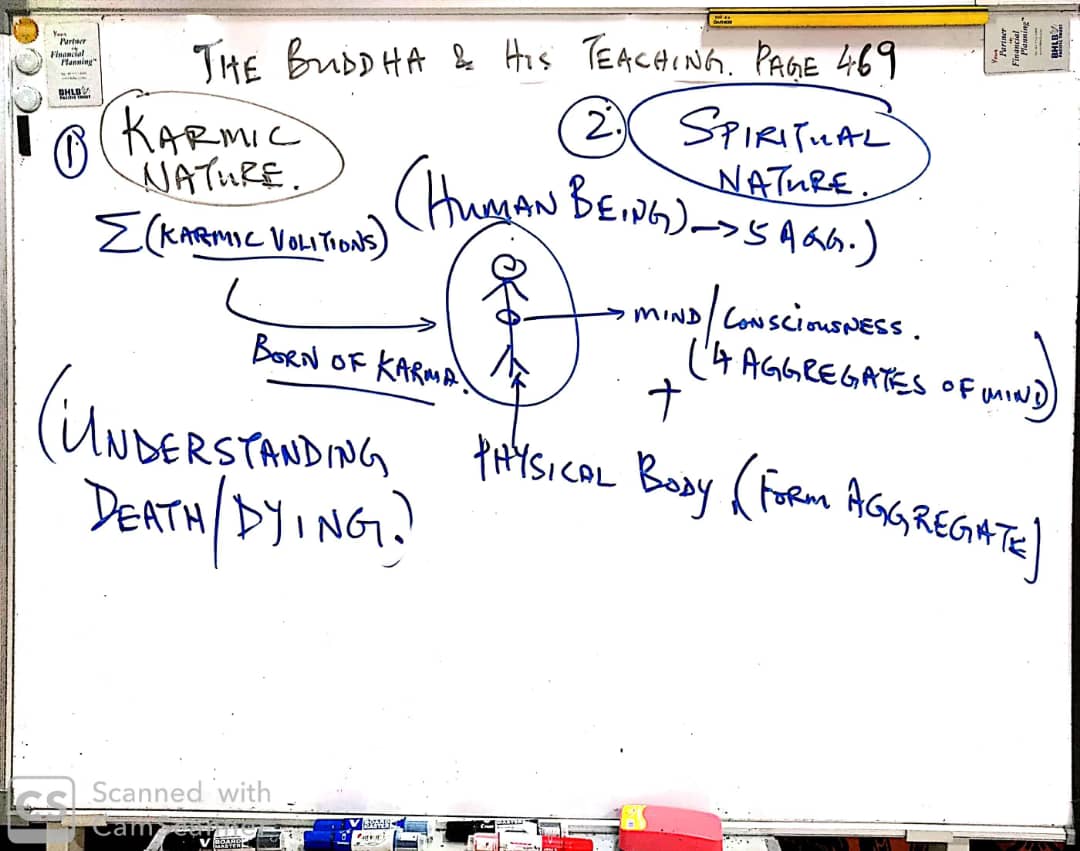 Your
Partner
in
Financial
Planning"
BHLB
PACIFIC TRUST
Your
Partner
in
Financial
Planning"
BHLB
THE BUDDHA & HIS TEACHING. PAGE 469
① KARMIC
NATURE.
2. SPIRITUAL
NATURE.
Σ(KARMIC VOLITIONS)
(HUMAN BEING) → 5 AGG.)
→ MIND/CONSCIOUSNESS.
(4 AGGREGATES OF MIND)
+
BORN OF KARMA.
(UNDERSTANDING
DEATH/DYING.)
PHYSICAL BODY (FORM AGGREGATE)
CS Scanned with
CamScanner